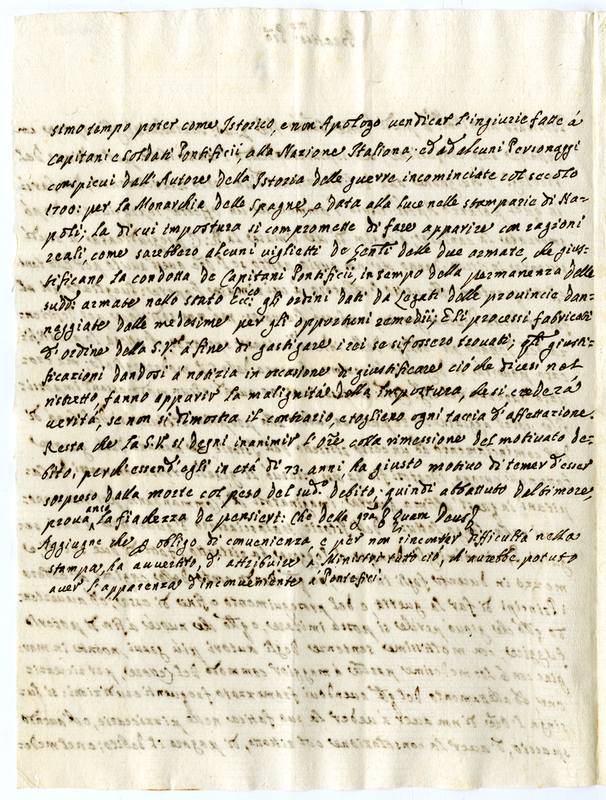 simo tempo poter come Istorico, e non Apologo vendicar l'ingiurie fatte à
Capitani e Soldati Pontificij, alla Nazione Italiana, ed ad alcuni Personaggi
conspicui dall'Autore della Istoria delle guerre incominciate col secolo
1700: per la Monarchia delle Spagne, e data alla luce nelle stamparie di Na-
poli; la di cui impostura si compromette di fare apparire con ragioni
reali, come sarebbero alcuni viglietti de Genli delle due armate, che gius-
tificano la condotta de Capitani Pontificij, in tempo della permanenza delle
sudd: armate nello stato Ecc:co gli ordini dati da Legati delle provincie dan-
neggiate dalle medesime per gli opportuni remedij; E li processi fabricati
d'ordine della S.V. à fine di gastigare i rei se si fossero trovati; qli giusti-
ficazioni dandosi à notizia in occasione di giustificare ciò che dicesi nel
ristretto, fanno apparir la malignità della Impostura, che si crederà
verità, se non si dimostra il contrario, e togliero ogni taccia d'affettazione.
Resta che la S.V. si degni inanimir l'Ore colla rimessione del motivato de-
bito, perch'essend'egli in età di 73. anni, ha giusto motivo di temer d'esser
sorpreso dalla morte col peso del sud: debito; quindi abbattuto dal timore,
prova la fiachezza de pensieri: Che della gra Quam Deus
Aggiugne che obligo di convenienza, e per non rincontrar difficultà nella
stampa, ha avvertito, di attribuire à Ministri tutto ciò, ch'avrebbe potuto
aver l'apparenza d'inconveniente à Pontefici.